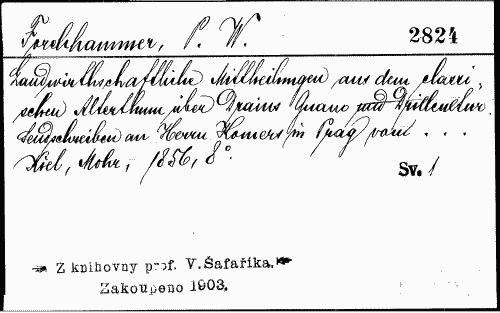 Forchhammer, P. W.
2824
Landwirthschaftliche Mittheilungen aus dem classi-
schen Alterthum über Drains Guano und Drillcultur.
Sendschreiben an Herrn Komers in Prag vom . . .
Kiel, Mohr, 1856, 8°.
Sv. 1
Z knihovny prof. V. Šafaříka.
Zakoupeno 1903.